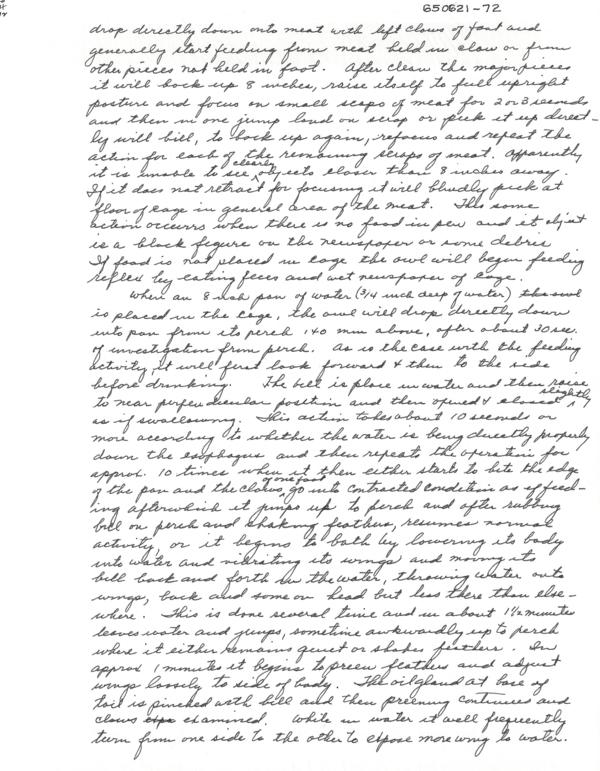 650621-72
drop directly down onto meat with left claws of foot and
generally start feeding from meat held in claw or from
other pieces not held in foot. After clean the major pieces
it will back up 8 inches, raise itself to full upright
posture and focus on small scraps of meat for 2 or 3 seconds
and then in one jump land on scrap or pick it up direct-
ly will bill, to back up again, refocus and repeat the
action for each of the remaining scraps of meat. Apparently
it is unable to see clearly objects closer than 8 inches away.
If it does not retract for focusing it will blindly pick at
floor of cage in general area of the meat. This same
action occurrs when there is no food in pen and it object
is a black figure on the newspaper or some debris
If food is not placed in cage the owl will begin feeding
reflex by eating feces and wet newspaper of cage.
When an 8 inch pan of water (3/4 inch deep of water) the owl
is placed in the cage, the owl will drop directly down
into pan from its perch 140 mm above, after about 30 sec.
of investigation from perch. As is the case with the feeding
activity it will first look forward & then to the side
before drinking. The bill is place in water and then raise
to near perpendicular position and then opened & closed slightly
as if swallowing. This action takes about 10 seconds or
more according to whether the water is being directly properly
down the esophagus and then repeats the operation for
approx. 10 times when it then either starts to bite the edge
of the pan and the claws of one foot go into contracted condition as if feed-
ing afterwhich it jumps up to perch and after rubbing
bill on perch and shaking feathers, resumes normal
activity, or it begins to bath by lowering its body
into water and vibrating its wings and moving its
bill back and forth in the water, throwing water onto
wings, back and some on head but less there than else-
where. This is done several time and in about 1 1/2 minutes
leaves water and jumps, sometime awkwardly up to perch
where it either remains quiet or shakes feathers. In
approx 1 minutes it begins to preen feathers and adjust
wings loosely to side of body. The oil gland at base of
tail is pinched with bill and then preening continues and
claws examined. While in water it will frequently
turn from one side to the other to expose more wing to water.